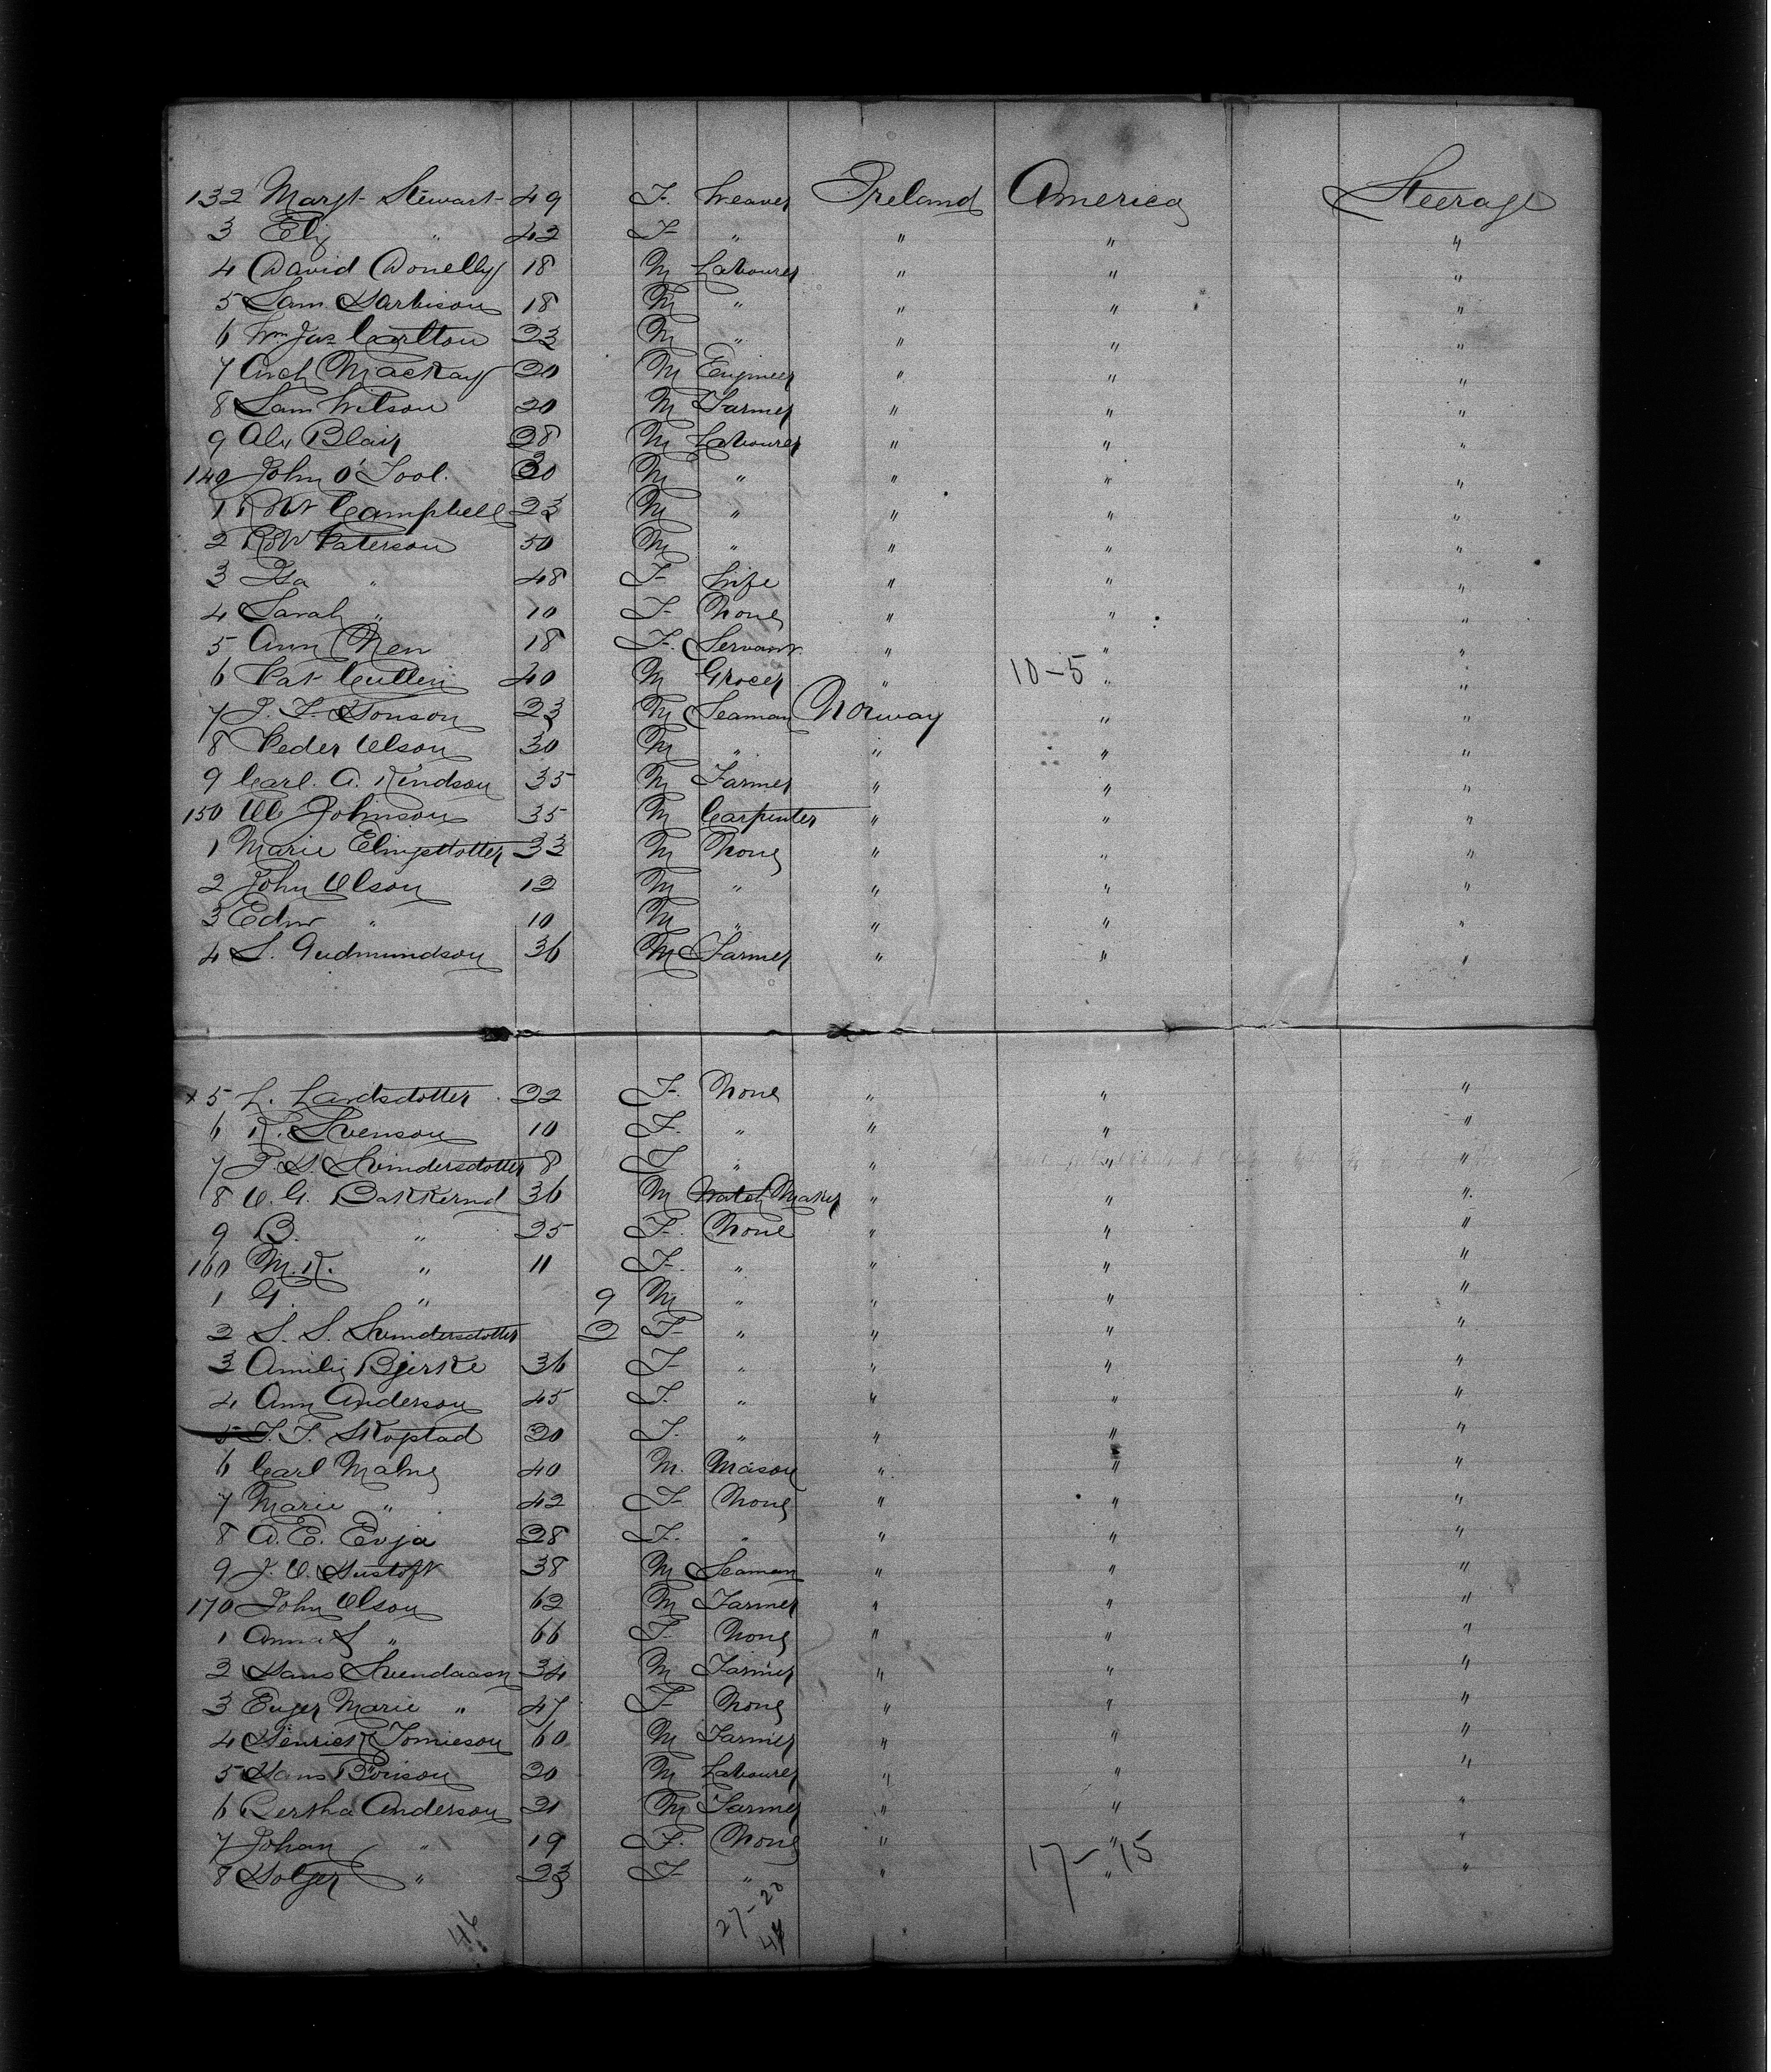 132 Margt Stewart 49 F. Weaver Ireland America Steerage
3 Eliz " 42 F " " " "
4 David Donelly 18 M Labourer " " "
5 Sam Harbison 18 M " " " "
6 Wm Jas Carlton 23 M " " " "
7 Arch Mackay 20 M Engineer " " "
8 Sam Wilson 20 M Farmer " " "
9 Alx Blair 28 M Labourer " " "
140 John O'Tool. 30 M " " " "
1 Robt Campbell 23 M " " " "
2 Robt Paterson 50 M " " " "
3 Isa " 48 F Wife " " "
4 Sarah " 10 F None " " "
5 Ann 18 F. Servant " " "
6 Pat Cullen 40 M Grocer " 10-5 " "
7 J. F. 23 M Seaman Norway " "
8 Peder Olson 30 M " " " "
9 Carl. A. Kendson 35 M Farmer " " "
150 Ole Johnson 35 M Carpenter " " "
1 Marie 33 M None " " "
2 John Olson 12 M " " " "
3 Edw " 10 M " " " "
4 S. Gudmundson 36 M Farmer " " "
x 5 L. Lardsdotter 22 F. None " " "
6 K. Svenson 10 F. " " " "
7 8 F " " " "
8 O. G. Bakkerud 36 M Watch Maker " " "
9 B. " 25 F. None " " "
160 M. K. " 11 F. " " " "
1 G. " 9 M " " " "
2 S. S. 2 F " " " "
3 Amilie Bjerke 36 F " " " "
4 Ann Anderson 45 F. " " " "
5 Skoptad 20 F. " " " "
6 Carl Malne 40 M. Mason " " "
7 Marie " 42 F None " " "
8 A. E. Evja 28 F. " " " "
9 J. O. 38 M Seaman " " "
170 John Olson 62 M Farmer " " "
1 Anna S " 66 F None " " "
2 Hans Svendaasn 34 M Farmer " " "
3 Enger Marie " 47 F None " " "
4 Henrick Tomieson 60 M Farmer " " "
5 Hans 20 M Labourer " " "
6 Bertha Anderson 21 M Farmer " " "
7 Johan " 19 F. None " " "
8 Holger " 23 F " " 17-15 " "
46 27-20